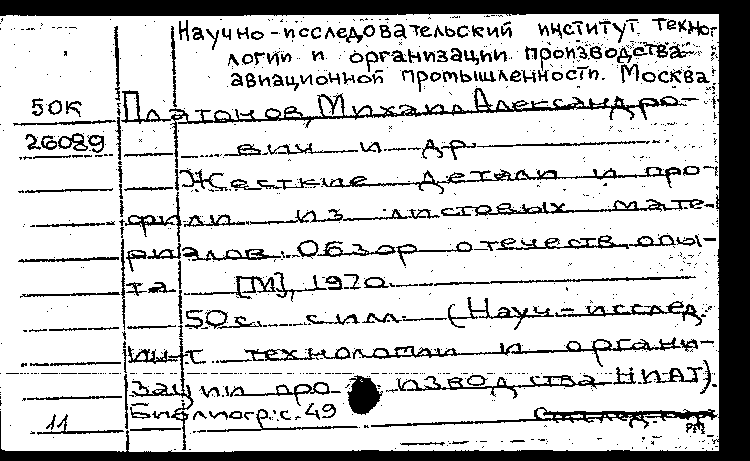 Научно-исследовательский институт техно-
логии и организации производства
авиационной промышленности. Москва
50К Платонов, Михаил Александро-
26089 вич и др.
Жесткие детали и про-
фили из листовых мате-
риалов. Обзор отечеств. опы-
та. [М], 1970.
50 с. с илл. (Науч.-исслед.
ин-т технологии и органи-
зации производства НИАТ).
Библиогр.: с. 49
11